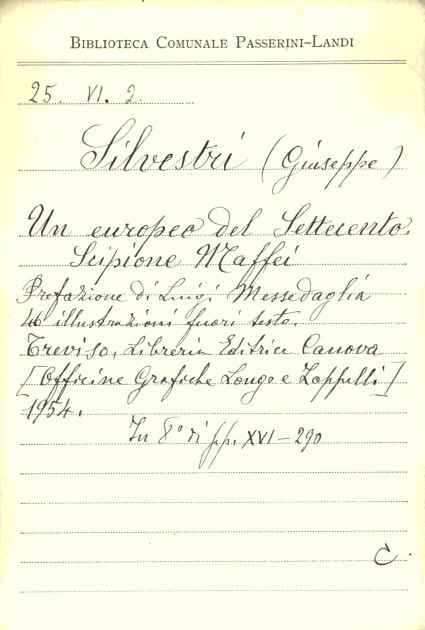 BIBLIOTECA COMUNALE PASSERINI-LANDI
25. VI. 2.
Silvestri (Giuseppe)
Un europeo del Settecento.
Scipione Maffei
Prefazione di Luigi Messedaglia
46 illustrazioni fuori testo.
Treviso, Libreria Editrice Canova
[Officine Grafiche Longo e Zoppelli]
1954.
In 8° di pp. XVI-290
C.